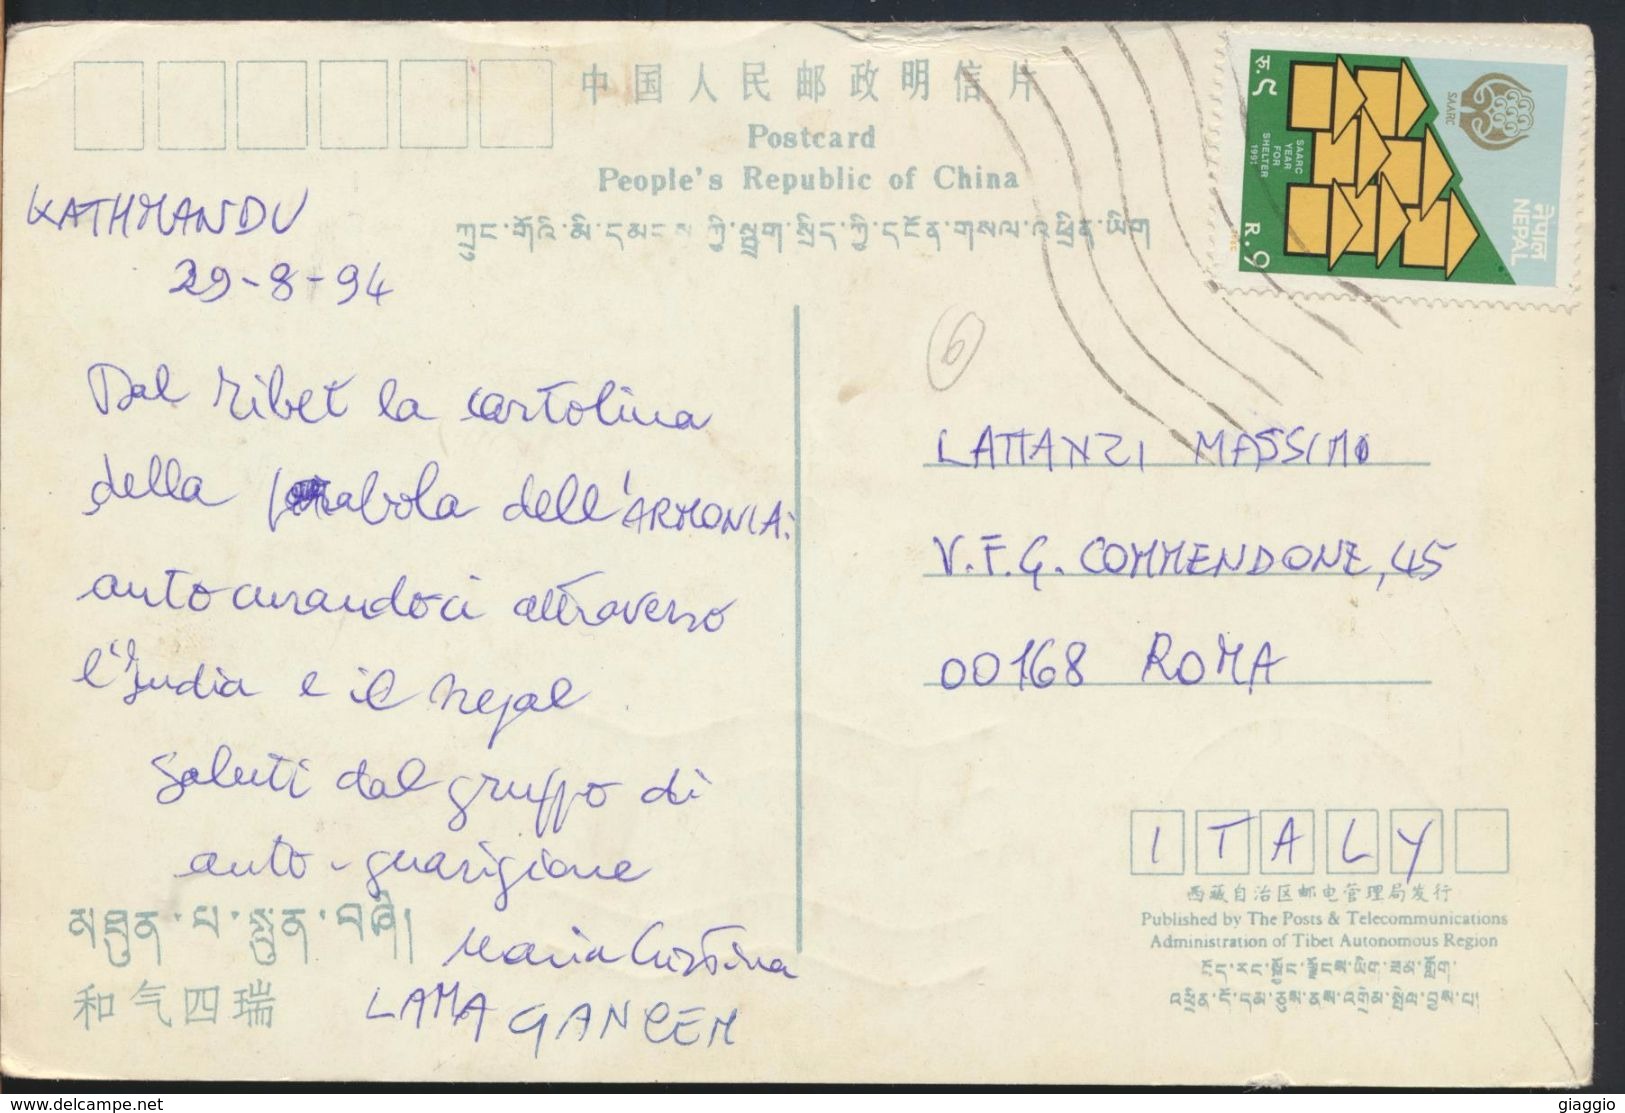 中国人民邮政明信片
Postcard
People's Republic of China
ཀྲུང་གོའི་མི་དམངས་ཀྱི་སྦྲག་སྲིད་ཀྱི་དངོན་གསལ་འཕྲིན་ཡིག
नेपाल
NEPAL
SAARC
SAARC
YEAR
FOR
SHELTER
1991
रु. ९
R. 9
KATHMANDU
29-8-94
6
Dal Tibet la cartolina
della parabola dell'ARMONIA:
autocurandoci attraverso
l'India e il Nepal
Saluti dal gruppo di
auto-guarigione
Maria Cristina
LAMA GANCEN
མཐུན་པ་སྤུན་བཞི།
和气四瑞
LATTANZI MASSIMO
V. F. G. COMMENDONE, 45
00168 ROMA
ITALY
西藏自治区邮电管理局发行
Published by The Posts & Telecommunications
Administration of Tibet Autonomous Region
https://www.delcampe.net
giaggio